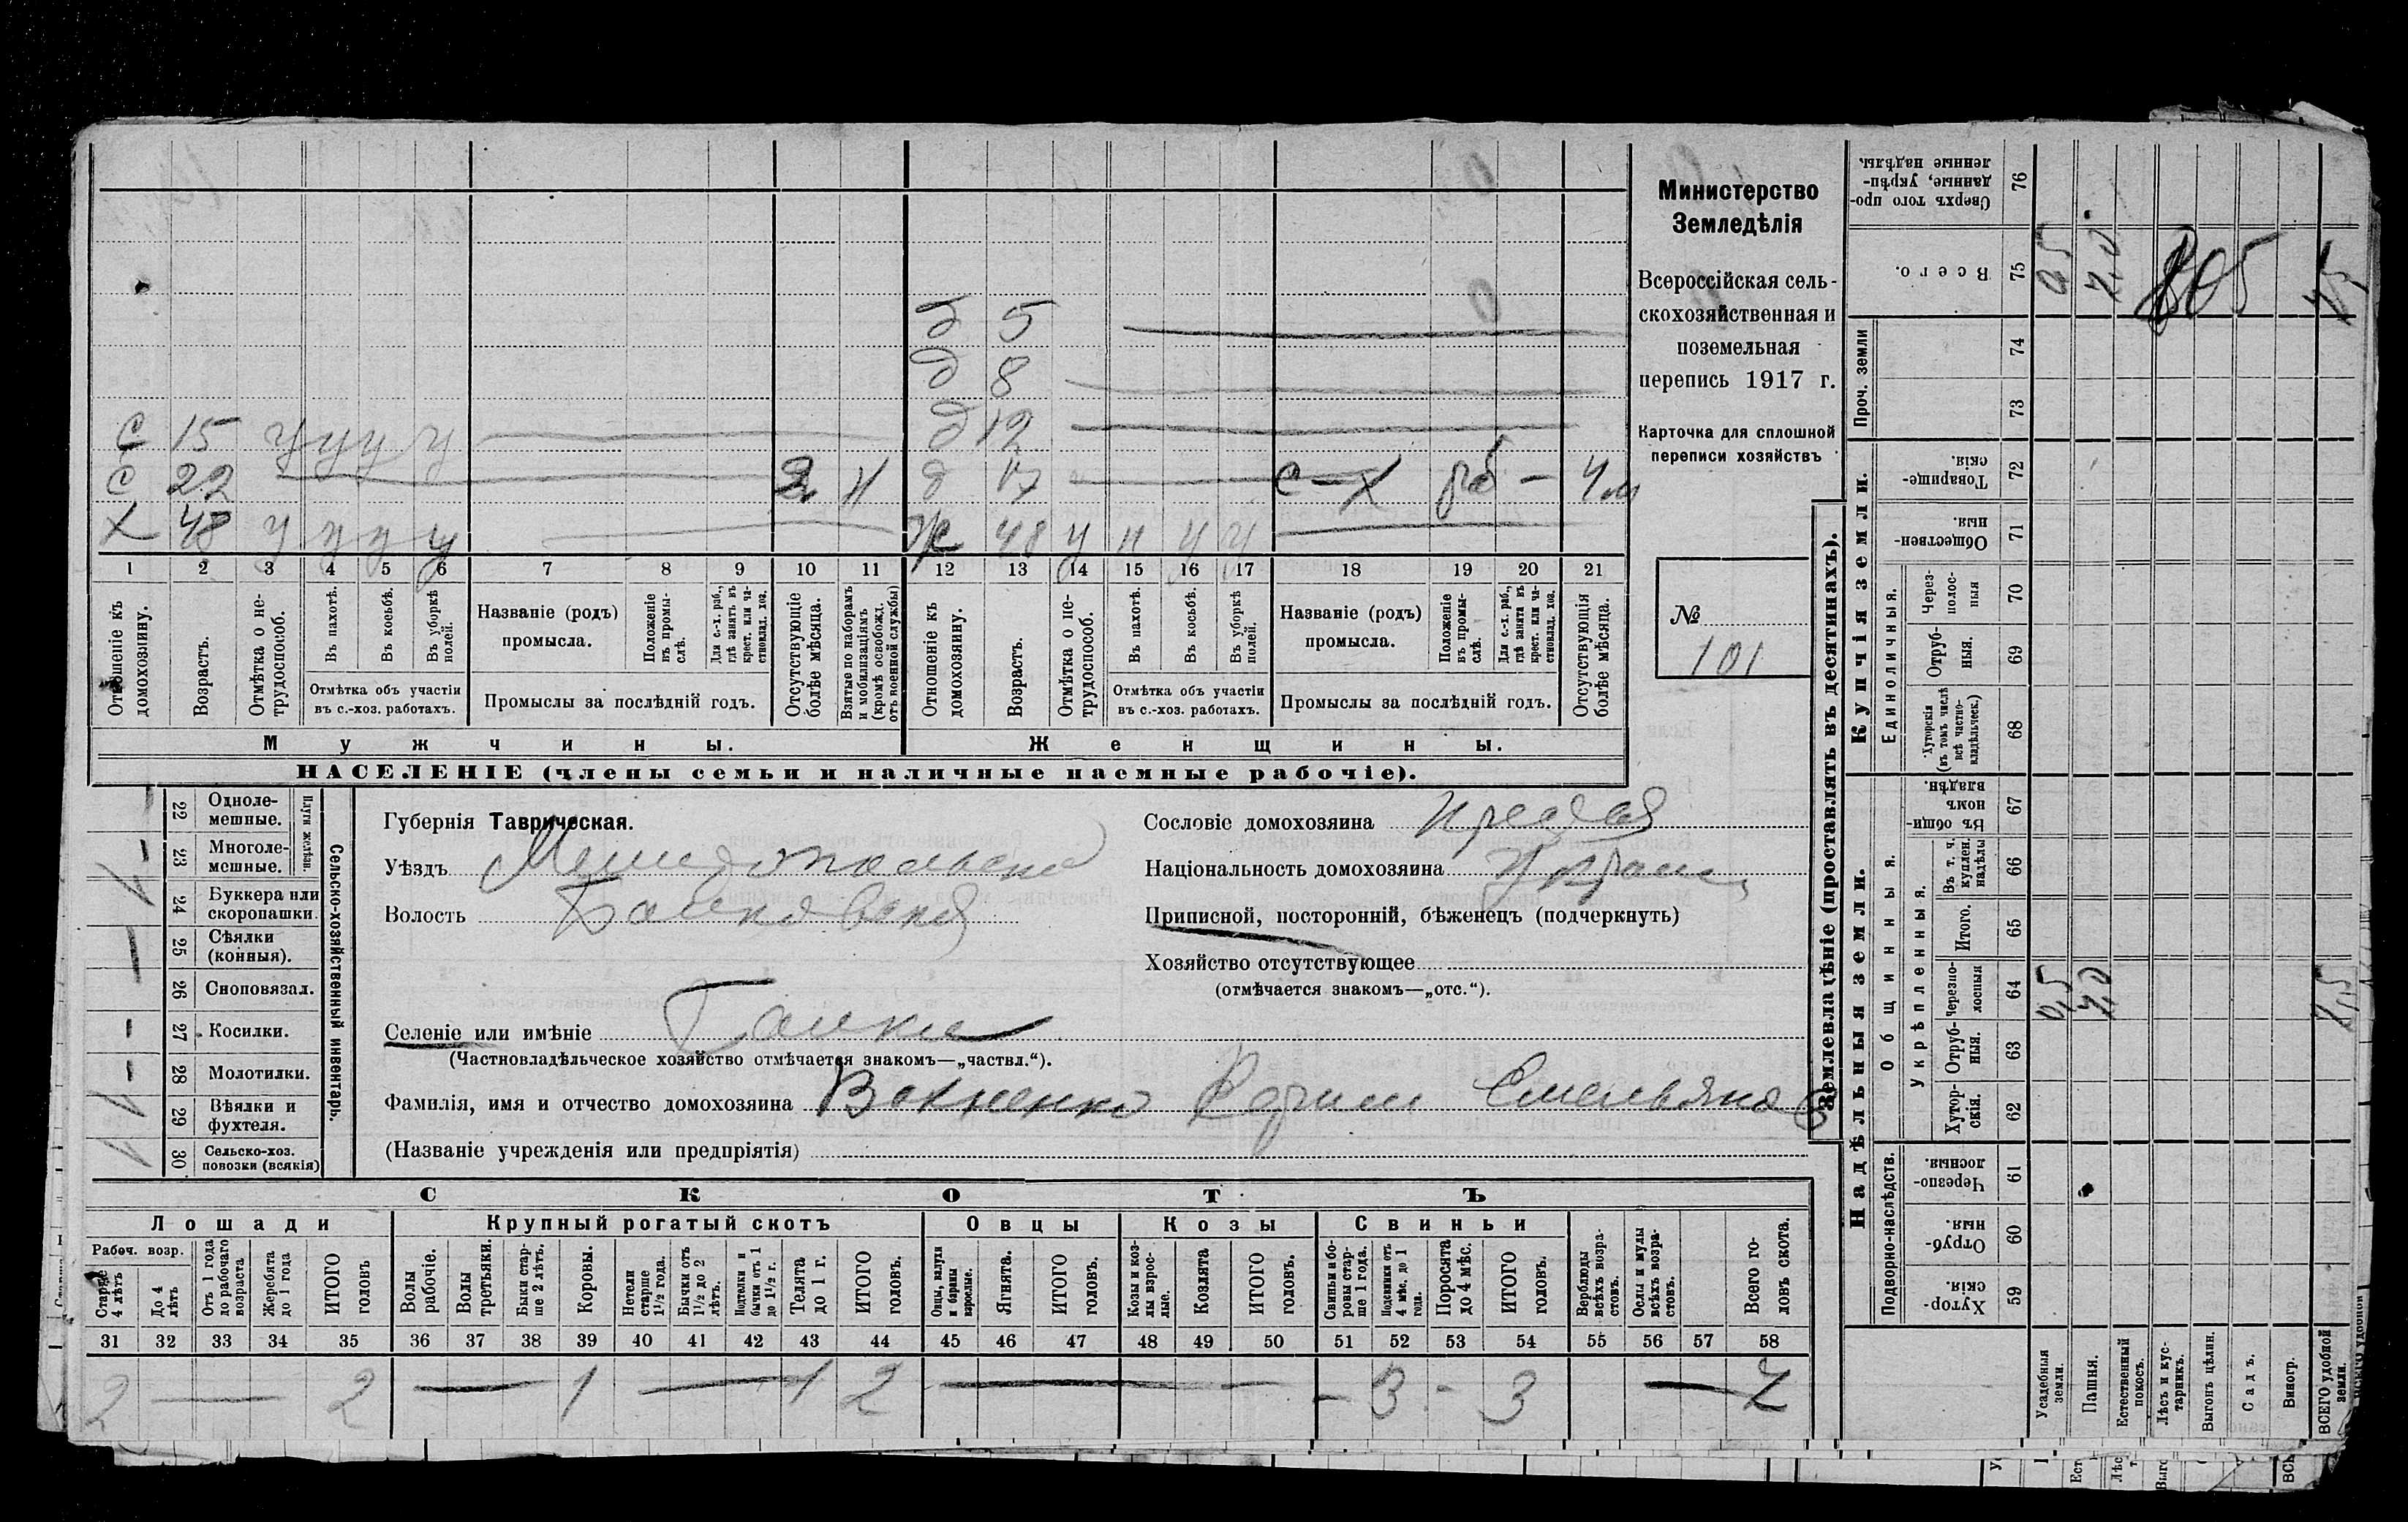 б 5 —
д 8 —
С 15 у у у у — д 12 —
С 22 — 2 н д 17 — с-х рб - 4 м
Х 48 у у у у — Ж 48 у н у у —
1 2 3 4 5 6 7 8 9 10 11 12 13 14 15 16 17 18 19 20 21
Отношеніе къ домохозяину.
Возрастъ.
Отмѣтка о нетрудоспособ.
Въ пахотѣ.
Въ косьбѣ.
Въ уборкѣ полей.
Отмѣтка объ участіи въ с.-хоз. работахъ.
Названіе (родъ) промысла.
Положеніе въ промыслѣ.
Для с.-х. раб., гдѣ занятъ въ крест. или частновлад. хоз.
Промыслы за послѣдній годъ.
Отсутствующіе болѣе мѣсяца.
Взятые по наборамъ и мобилизаціямъ (кромѣ освобожд. отъ военной службы)
Отношеніе къ домохозяину.
Возрастъ.
Отмѣтка о нетрудоспособ.
Въ пахотѣ.
Въ косьбѣ.
Въ уборкѣ полей.
Отмѣтка объ участіи въ с.-хоз. работахъ.
Названіе (родъ) промысла.
Положеніе въ промыслѣ.
Для с.-х. раб., гдѣ занята въ крест. или частновлад. хоз.
Промыслы за послѣдній годъ.
Отсутствующія болѣе мѣсяца.
Мужчины. Женщины.
НАСЕЛЕНІЕ (члены семьи и наличные наемные рабочіе).
Министерство
Земледѣлія
Всероссійская сель-
скохозяйственная и
поземельная
перепись 1917 г.
Карточка для сплошной
переписи хозяйствъ
№
101
Сельско-хозяйственный инвентарь.
Плуги желѣзн.
22 Одноле-
мешные.
23 Многоле-
мешные.
24 Буккера или
скоропашки.
25 Сѣялки
(конныя).
26 Сноповязал.
27 Косилки.
28 Молотилки.
29 Вѣялки и
фухтеля.
30 Сельско-хоз.
повозки (всякія)
Губернія Таврическая.
Уѣздъ
Волость
Селеніе или имѣніе
(Частновладѣльческое хозяйство отмѣчается знакомъ—„частвл.“).
Фамилія, имя и отчество домохозяина
(Названіе учрежденія или предпріятія)
Сословіе домохозяина
Національность домохозяина
Приписной, посторонній, бѣженецъ (подчеркнуть)
Хозяйство отсутствующее
(отмѣчается знакомъ—„отс.“).
СКОТЪ
Лошади Крупный рогатый скотъ Овцы Козы Свиньи
Рабоч. возр.
Старше 4 лѣтъ
До 4 лѣтъ
Отъ 1 года до рабочаго возраста
Жеребята до 1 года
ИТОГО головъ
Волы рабочіе.
Волы третьяки.
Быки старше 2 лѣтъ.
Коровы.
Нетели старше 1½ года.
Бычки отъ 1½ до 2 лѣтъ.
Подтелки и бычки отъ 1 до 1½ г.
Телята до 1 г.
ИТОГО головъ.
Овцы, валухи и бараны взрослые.
Ягнята.
ИТОГО головъ.
Козы и козлы взрослые.
Козлята
ИТОГО головъ.
Свиньи и боровы старше 1 года.
Подсвинки отъ 4 мѣс. до 1 года.
Поросята до 4 мѣс.
ИТОГО головъ.
Верблюды всѣхъ возрастовъ.
Ослы и мулы всѣхъ возрастовъ.
Всего головъ скота.
31 32 33 34 35 36 37 38 39 40 41 42 43 44 45 46 47 48 49 50 51 52 53 54 55 56 57 58
2 — 2 — 1 — 1 2 — - 3 - 3 — 7
Землевладѣніе (проставлять въ десятинахъ).
Сверхъ того проданные, укрѣпленные надѣлы. 76
Всего. 75
Проч. земли 74 73
Купчія земли.
Товарищескія. 72
Общественныя. 71
Единоличныя.
Черезполосныя 70
Отрубныя. 69
Хуторскія (въ томъ числѣ всѣ частновладѣльческ.) 68
Надѣльныя земли.
Общинныя.
Въ общинномъ владѣн. 67
Укрѣпленныя.
Въ т. ч. куплен. надѣлы 66
Итого. 65
Черезполосныя 64
Отрубныя. 63
Хуторскія. 62
Подворно-наслѣдств.
Черезполосныя. 61
Отрубныя. 60
Хуторскія. 59
Усадебныя земли. 0,5
Пашня. 7,0
Естественный покосъ.
Лѣсъ и кустарникъ.
Выгонъ цѣлин.
Садъ.
Виногр.
ВСЕГО удобной земли. 7,5